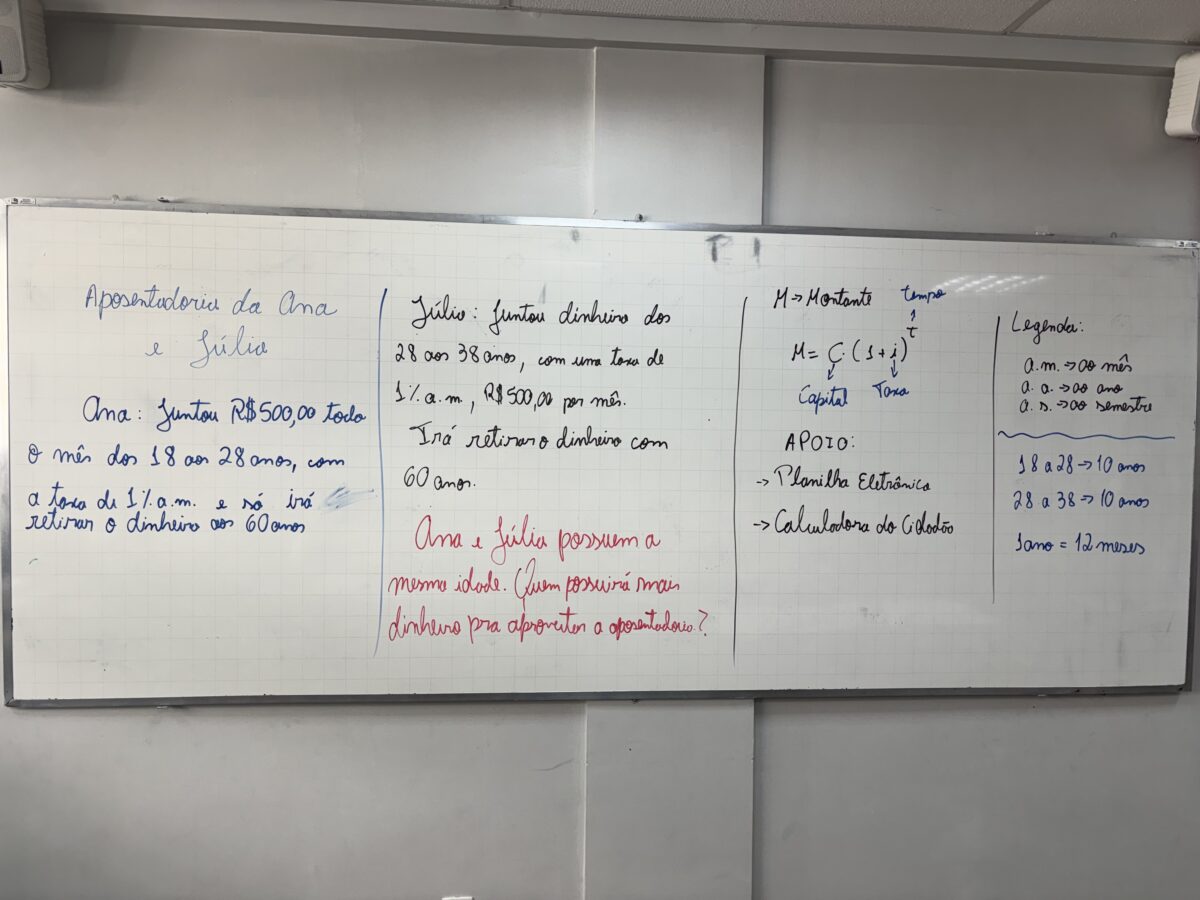 Aposentadoria da Ana
e Júlia
Ana: Juntou R$500,00 todo
o mês dos 18 aos 28 anos, com
a taxa de 1% a.m. e só irá
retirar o dinheiro aos 60 anos
Júlia: Juntou dinheiro dos
28 aos 38 anos, com uma taxa de
1% a.m, R$500,00 por mês.
Irá retirar o dinheiro com
60 anos.
Ana e Júlia possuem a
mesma idade. Quem possuirá mais
dinheiro pra aproveitar a aposentadoria?
M → Montante
tempo
M = C · (1 + i)^t
Capital
Taxa
APOIO:
→ Planilha Eletrônica
→ Calculadora do Cidadão
Legenda:
a.m. → ao mês
a. a. → ao ano
a. s. → ao semestre
18 a 28 → 10 anos
28 a 38 → 10 anos
1 ano = 12 meses